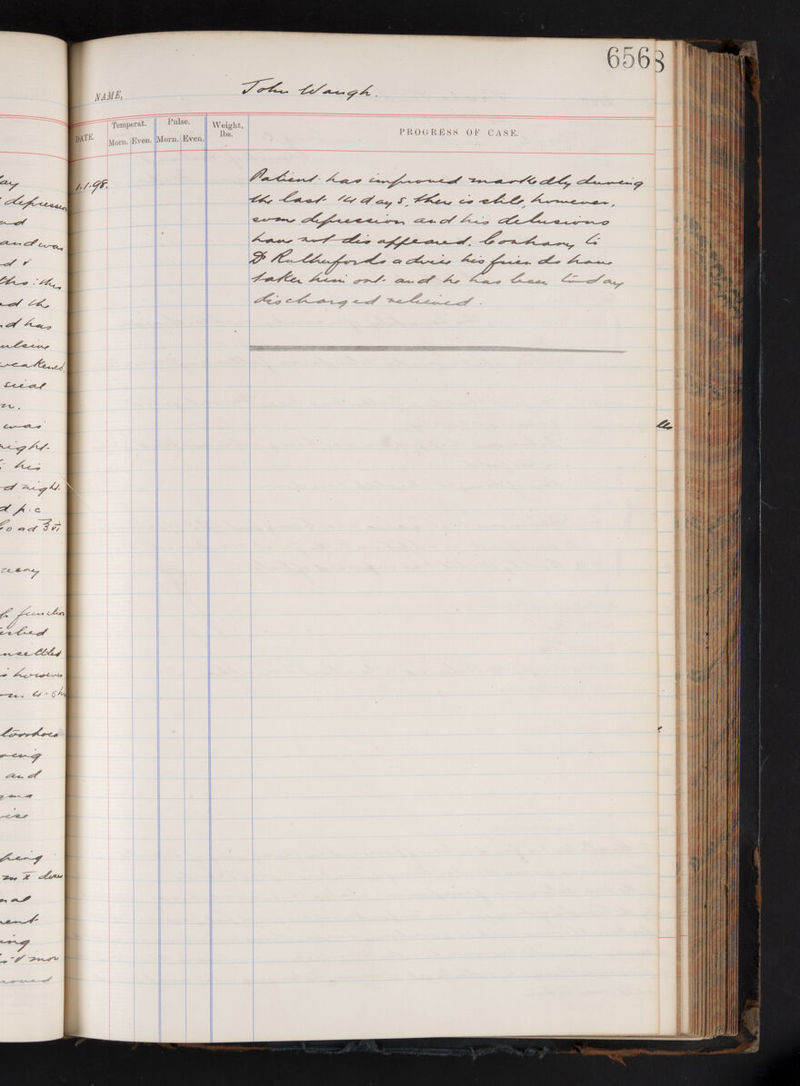 6568
NAME, John Waugh.
DATE. Temperat. Morn. Even. Pulse. Morn. Even. Weight, lbs. PROGRESS OF CASE.
1.1.98. Patient has improved markedly during
the last 14 days, there is still, however,
some depression and his delusions
have not disappeared. Contrary to
Dr Rutherfords advice his friends have
taken him out and he has been today
discharged relieved.
depression
and was
the
d has
weakened
was
night.
his
d night.
d p.c
function
and